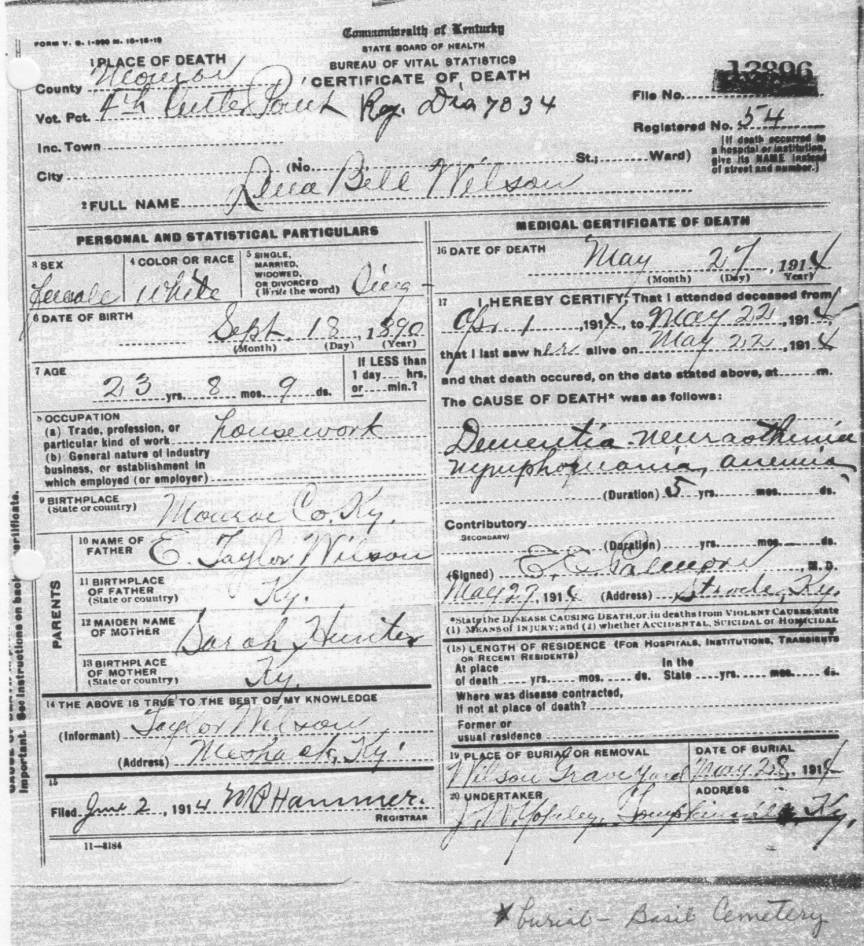 FORM V. S. 1
Commonwealth of Kentucky
STATE BOARD OF HEALTH
BUREAU OF VITAL STATISTICS
CERTIFICATE OF DEATH
1 PLACE OF DEATH
County Monroe
Vot. Pct. 4th Center Point Reg. Dis 7834
Inc. Town
City (No. St.; Ward)
File No. 12896
Registered No. 54
[If death occurred in
a hospital or institution,
give its NAME instead
of street and number.]
2 FULL NAME Bell Wilson
PERSONAL AND STATISTICAL PARTICULARS
3 SEX Female
4 COLOR OR RACE White
5 SINGLE,
MARRIED,
WIDOWED,
OR DIVORCED
(Write the word) Sing-
6 DATE OF BIRTH
Sept. 18, 1890
(Month) (Day) (Year)
7 AGE
23 yrs. 8 mos. 9 ds.
If LESS than
1 day.... hrs,
or.... min.?
8 OCCUPATION
(a) Trade, profession, or
particular kind of work housework
(b) General nature of industry
business, or establishment in
which employed (or employer)
9 BIRTHPLACE
(State or country) Monroe Co. Ky.
PARENTS
10 NAME OF
FATHER E. Taylor Wilson
11 BIRTHPLACE
OF FATHER
(State or country) Ky.
12 MAIDEN NAME
OF MOTHER Sarah Hunter
13 BIRTHPLACE
OF MOTHER
(State or country) Ky.
14 THE ABOVE IS TRUE TO THE BEST OF MY KNOWLEDGE
(Informant) Taylor Wilson
(Address) Meshack, Ky.
15
Filed June 2, 1914 M P Hammer.
REGISTRAR
11-3184
MEDICAL CERTIFICATE OF DEATH
16 DATE OF DEATH May 27, 1914
(Month) (Day) Year)
17 I HEREBY CERTIFY, That I attended deceased from
Apr 1, 1914, to May 22, 1914
that I last saw her alive on May 22, 1914
and that death occured, on the date stated above, at m.
The CAUSE OF DEATH* was as follows:
Dementia neurasthinia
nymphomania, anemia
(Duration) 5 yrs. mos. ds.
Contributory
SECONDARY)
(Duration) yrs. mos. ds.
(Signed) M.D.
May 27, 1914 (Address) Strode, Ky.
*State the DISEASE CAUSING DEATH, or, in deaths from VIOLENT CAUSES, state
(1) MEANS of INJURY; and (2) whether ACCIDENTAL, SUICIDAL or HOMICIDAL
(18) LENGTH OF RESIDENCE (FOR HOSPITALS, INSTITUTIONS, TRANSIENTS
OR RECENT RESIDENTS)
At place In the
of death yrs. mos. ds. State yrs. mos. ds.
Where was disease contracted,
if not at place of death?
Former or
usual residence
19 PLACE OF BURIAL OR REMOVAL
Wilson Grave Yard
DATE OF BURIAL
May 28, 1914
20 UNDERTAKER
ADDRESS
Tompkinsville, Ky.
important. See instructions on back of certificate.
* burial - Basil Cemetery